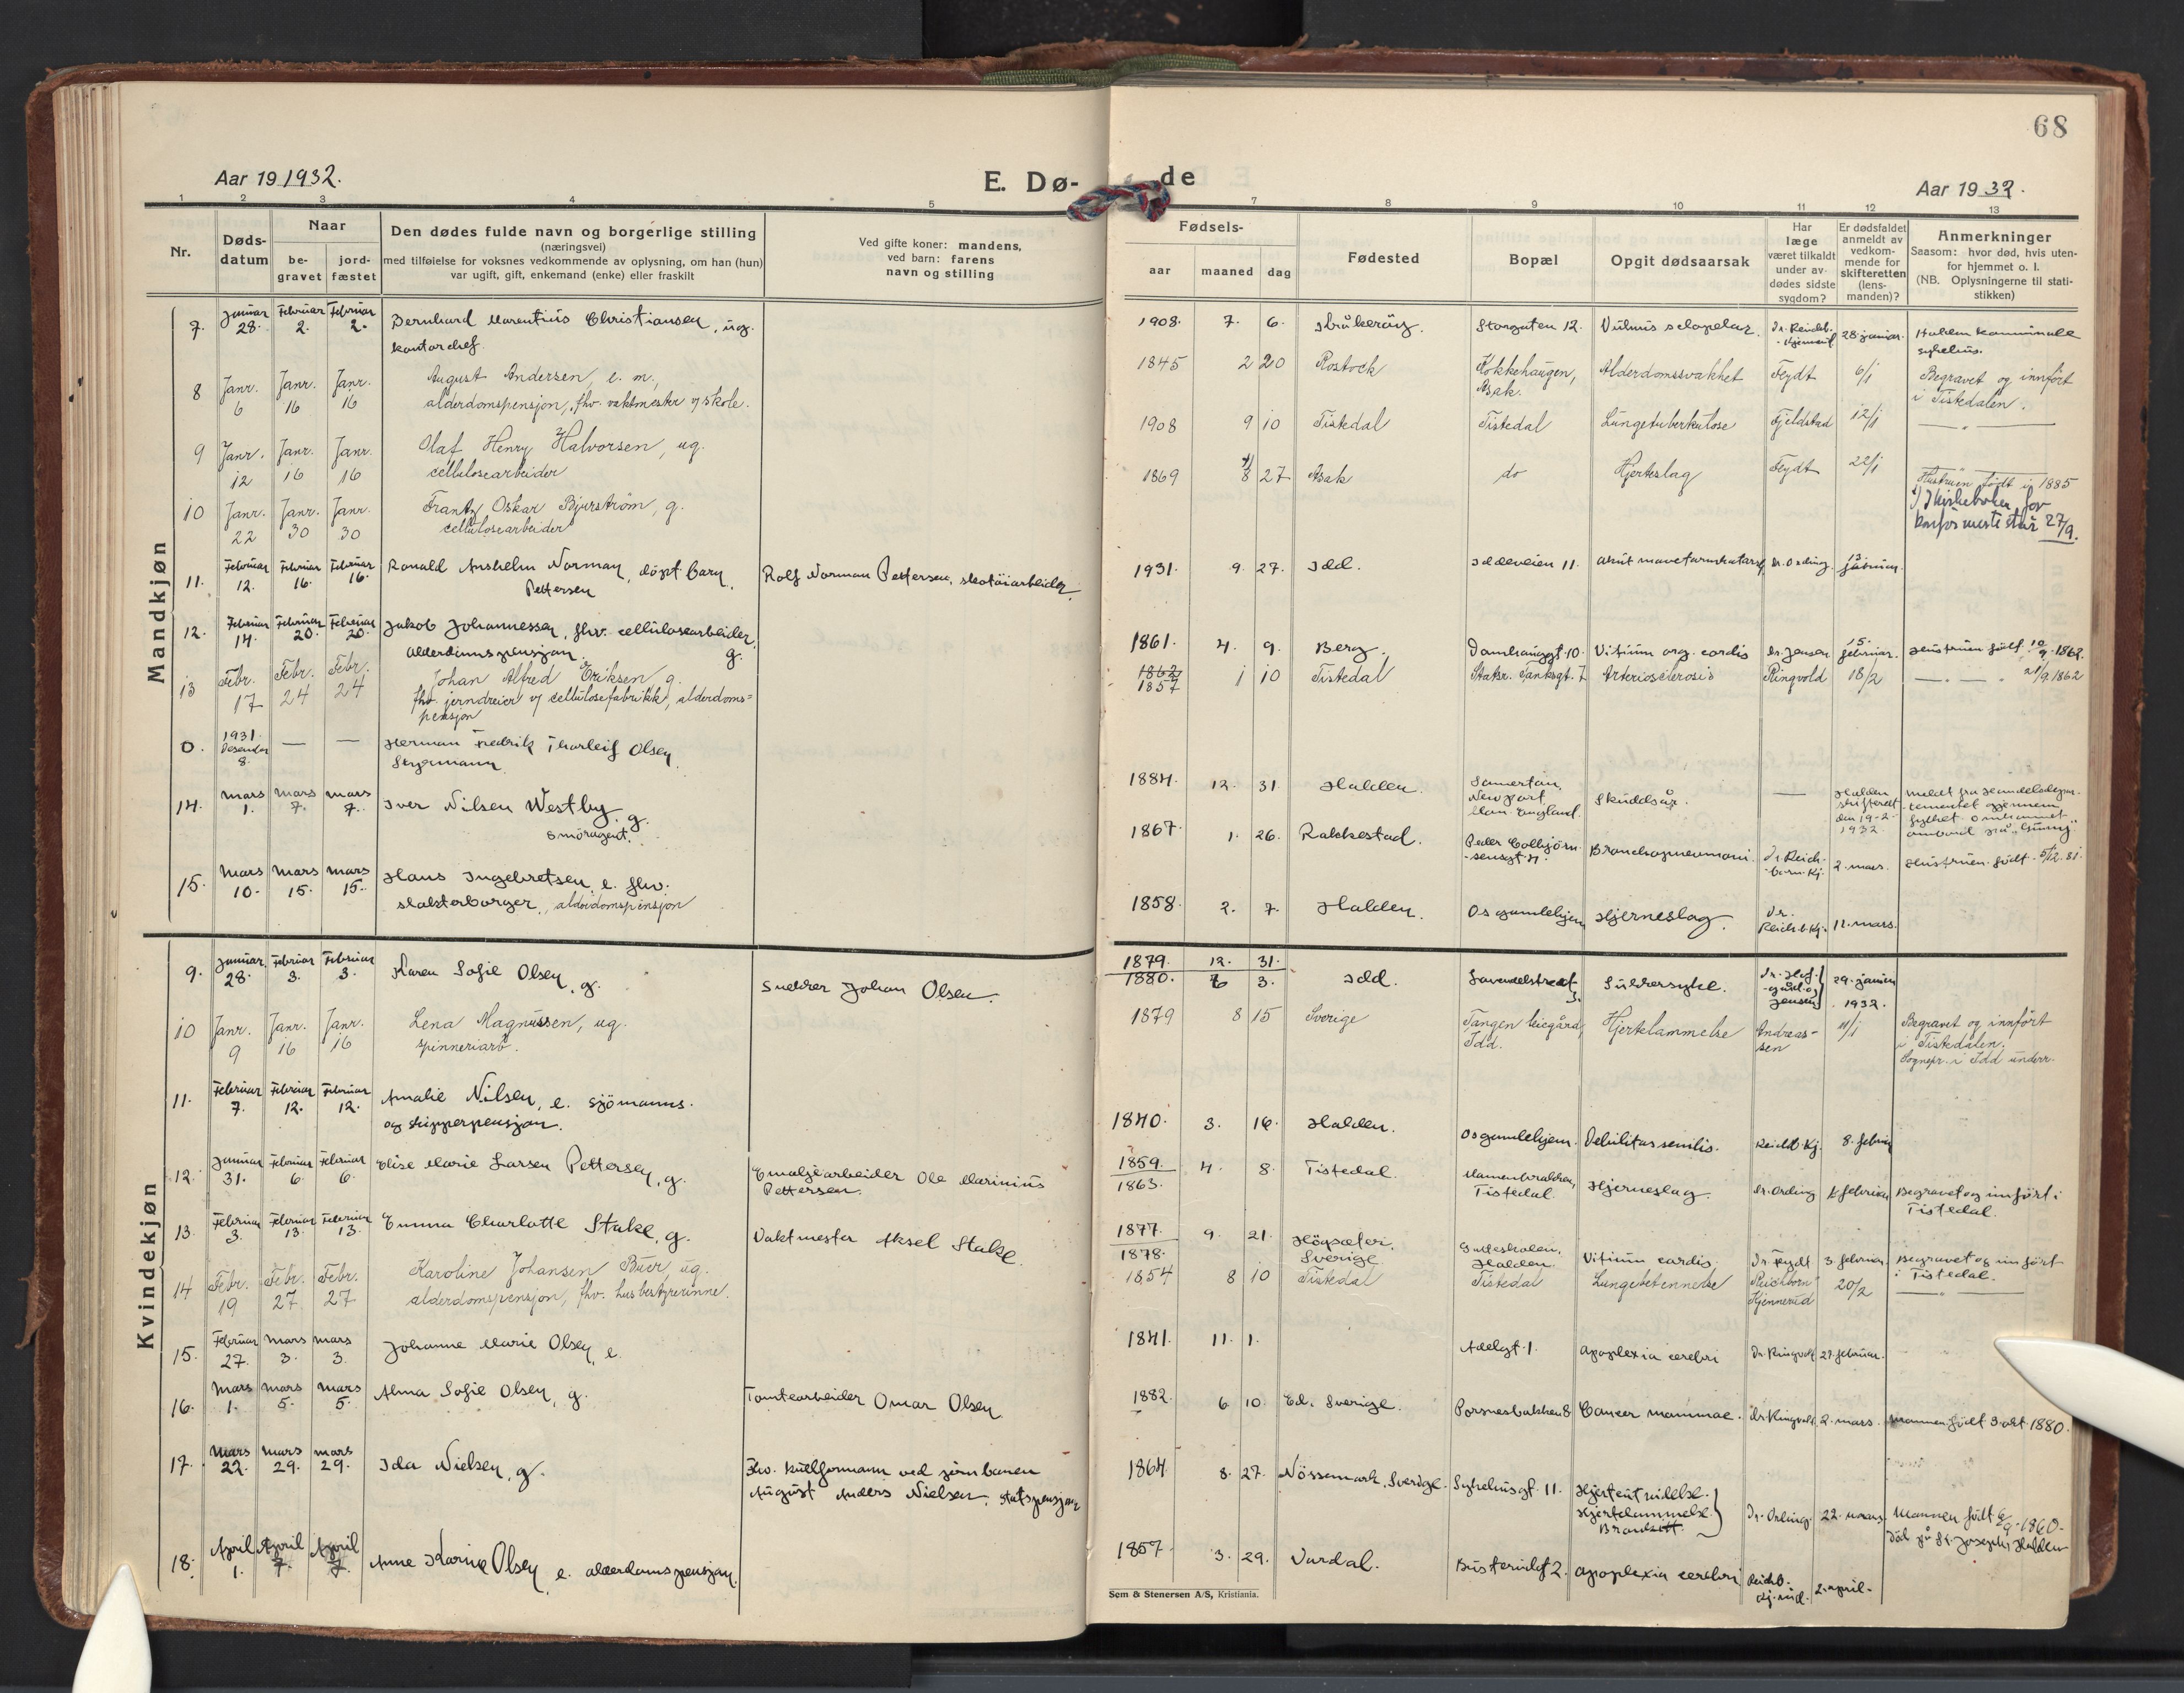 68
Aar 19 1932.
E. Dø-
de
Aar 19 32.
1 2 3 4 5 7 8 9 10 11 12 13
Nr.
Døds-
datum
Naar
be-
gravet
jord-
fæstet
Den dødes fulde navn og borgerlige stilling
(næringsvei)
med tilføielse for voksnes vedkommende av oplysning, om han (hun)
var ugift, gift, enkemand (enke) eller fraskilt
Ved gifte koner: mandens,
ved barn: farens
navn og stilling
Fødsels-
aar maaned dag
Fødested
Bopæl
Opgit dødsaarsak
Har
læge
været tilkaldt
under av-
dødes sidste
sygdom?
Er dødsfaldet
anmeldt av
vedkom-
mende for
skifteretten
(lens-
manden)?
Anmerkninger
Saasom: hvor død, hvis uten-
for hjemmet o. l.
(NB. Oplysningerne til stati-
stikken)
Mandkjøn
7. Januar 28. Februar 2. Februar 2. Bernhard Marentius Christiansen, ug.
kontorchef.
1908. 7. 6. Storgaten 12. Vulnus sclopetar. 28 januar. Halden kommunale
sykehus.
8 Janr. 6 Janr. 16 Janr. 16 August Andersen, e. m.,
alderdomspensjon, fhv. vaktmester v/ skole.
1845 2 20 Rostock Kokkehaugen,
Asak. Alderdomssvakhet Feydt 6/1 Begravet og innført
i Tistedalen.
9 Janr. 12 Janr. 16 Janr. 16 Olaf Henry Halvorsen, ug.
cellulosearbeider
1908 9 10 Tistedal Tistedal Lungetuberkulose Fjeldstad 12/1 — " —
10 Janr. 22 Janr. 30 Janr. 30 Frantz Oskar Bjurstrøm, g.
cellulosearbeider
1869 8 27 Asak do Hjerteslag Feydt 22/1 Hustruen født i 1885
1) I kirkeboken for
konfirmerte står 27/9.
11. Februar 12. Februar 16. Februar 16. Ronald Anshelm Norman, døpt barn.
Pettersen
Rolf Norman Pettersen, skotøiarbeider.
1931. 9. 27. Idd. Iddeveien 11. Akut mavetarmkatarr Dr. Ording. 13
12. Februar 14. Februar 20. Februar 20. Jakob Johannessen, fhv. cellulosearbeider,
alderdomspensjon. g.
1861. 4. 9. Berg. Damhauggt. 10. Vitium org. cordis Dr. Jensen 15. februar. Hustruen født 10/9-1862.
13 Febr. 17 Febr. 24 Febr. 24 Johan Alfred Eriksen, g.
fhv. jerndreier v/ cellulosefabrikk, alderdoms=
pensjon
1862
1857 1 10 Tistedal Statsr. Tanksgt. 7 Arteriosclerosis Ringvold 18/2 — " — 21/9 1862
0. 1931. Desember 8. — — Herman Fredrik Thorleif Olsen
Styrmann
1884. 12. 31 Halden. Somerton,
Newport,
Mon. England. Skuddsår. — Halden
skifterett
den 19-2-
1932 Meldt fra Handelsdepar-
tementet gjennem
14. Mars 1. Mars 7. Mars 7. Iver Nilsen Westby. g.
Smøragent.
1867. 1. 26. Rakkestad. Peder Colbjørn-
sensgt. 4. Bronchopneumoni. Dr. Reich-
born-Kj. 2. mars. Hustruen født 5/12. 81.
15. Mars 10. Mars 15. Mars 15. Hans Ingebretsen, e. fhv.
slakterborger, alderdomspensjon
1858. 2. 7. Halden. Os gamlehjem Hjerneslag. Dr.
Reichb. Kj. 11. mars.
Kvindekjøn
9. Januar 28. Februar 3. Februar 3. Karen Sofie Olsen, g.
Snekker Johan Olsen.
1879. 12. 31.
1880. 6 3. Idd. Sukkersyke. 29. januar
1932.
10 Janr. 9 Janr. 16 Janr. 16 Lena Magnussen, ug.
spinneriarb.
1879 8 15 Sverige Tangen leiegård,
Idd. Hjertelammelse Andreas-
sen 11/1 Begravet og innført
i Tistedalen.
Sognepr. i Idd underr.
11. Februar 7. Februar 12. Februar 12. Amalie Nilsen, e. sjömanns-
og skipperpensjon.
1840. 3. 16. Halden. Os gamlehjem. Debilitas senilis. Reichb. Kj. 8. februar
12. Januar 31. Februar 6. Februar 6. Elise Marie Larsen Pettersen, g.
Emaljearbeider Ole Marinius
Pettersen.
1859.
1863. 4. 8. Tistedal.
Tistedal. Hjerneslag. Dr. Ording februar Begravet og innført i
Tistedal.
13. Februar 3. Februar 13. Februar 13. Emma Charlotte Stake, g.
Vaktmester Aksel Stake
1877.
1878. 9. 21. Högsäter,
Sverige Gutteskolen,
Halden. Vitium cordis. Dr. Feydt 3. februar Begravet og innført
i Tistedal.
14 Febr. 19 Febr. 27 Febr. 27 Karoline Johansen Buer, ug.
alderdomspensjon, fhv. husbestyrerinne.
1854 8 10 Tistedal Tistedal Lungebetennelse Reichborn
Kjennerud 20/2 — " —
15. Februar 27. Mars 3. Mars 3. Johanne Marie Olsen, e.
1841. 11. 1. Adelgt. 1. Apoplexia cerebri Dr. Ringvold 27. februar.
16. Mars 1. Mars 5. Mars 5. Alma Sofie Olsen, g.
Tomtearbeider Omar Olsen
1882. 6 10. Ed. Sverige. Porsnesbakken 8 Cancer mammae. Dr. Ringvold. 2. mars. Mannen født 3. okt. 1880.
17. Mars 22. Mars 29. Mars 29. Ida Nielsen, g.
Fhv. kullformann ved jernbanen
August Anders Nielsen. Statspensjon
1864 8. 27. Nössemark, Sverige. Sykehusgt. 11. Hjertelammelse.
Dr. Ording. 22. mars. Mannen født 6/9-1860.
Død på St. Josephs, Halden
18. April 1. April 7. April 7. Anne Karine Olsen, e. alderdomspensjon.
1857. 3. 29. Vardal. Busterudgt 2. Apoplexia cerebri Reichb.
Kj.rud. 2. april.
Sem & Stenersen A/S, Kristiania.